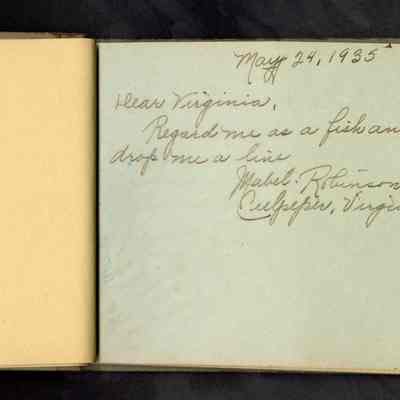 May 24, 1935
Dear Virginia,
Regard me as a fish an
drop me a line
Mabel Robinson
Culpeper, Virgi